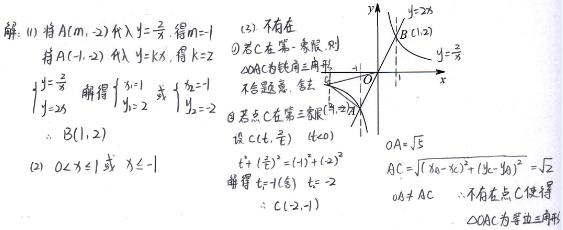 解：(1) 将 A(m,-2)代入 y=2/x. 得 m=-1
将 A(-1,-2)代入 y=kx, 得 k=2
{y=2/x
y=2x 解得 {x₁=1
y₁=2 或 {x₂=-1
y₂=-2
∴ B(1,2)
(2) 0<x≤1 或 x≤-1
(3). 不存在
①若C在第一象限,则
△OAC为钝角三角形,
不合题意,舍去.
②若点C在第三象限
设 C(t, 2/t) (t<0)
t²+(2/t)²=(-1)²+(-2)²
解得 t₁=-1(舍) t₂=-2
∴ C(-2,-1)
y
y=2x
B(1,2)
y=2/x
-1
O
1
x
C
A
(-1,-2)
OA=√5
AC=√((xA-xC)²+(yC-yA)²)=√2
OA≠AC ∴不存在点C使得
△OAC为等边三角形